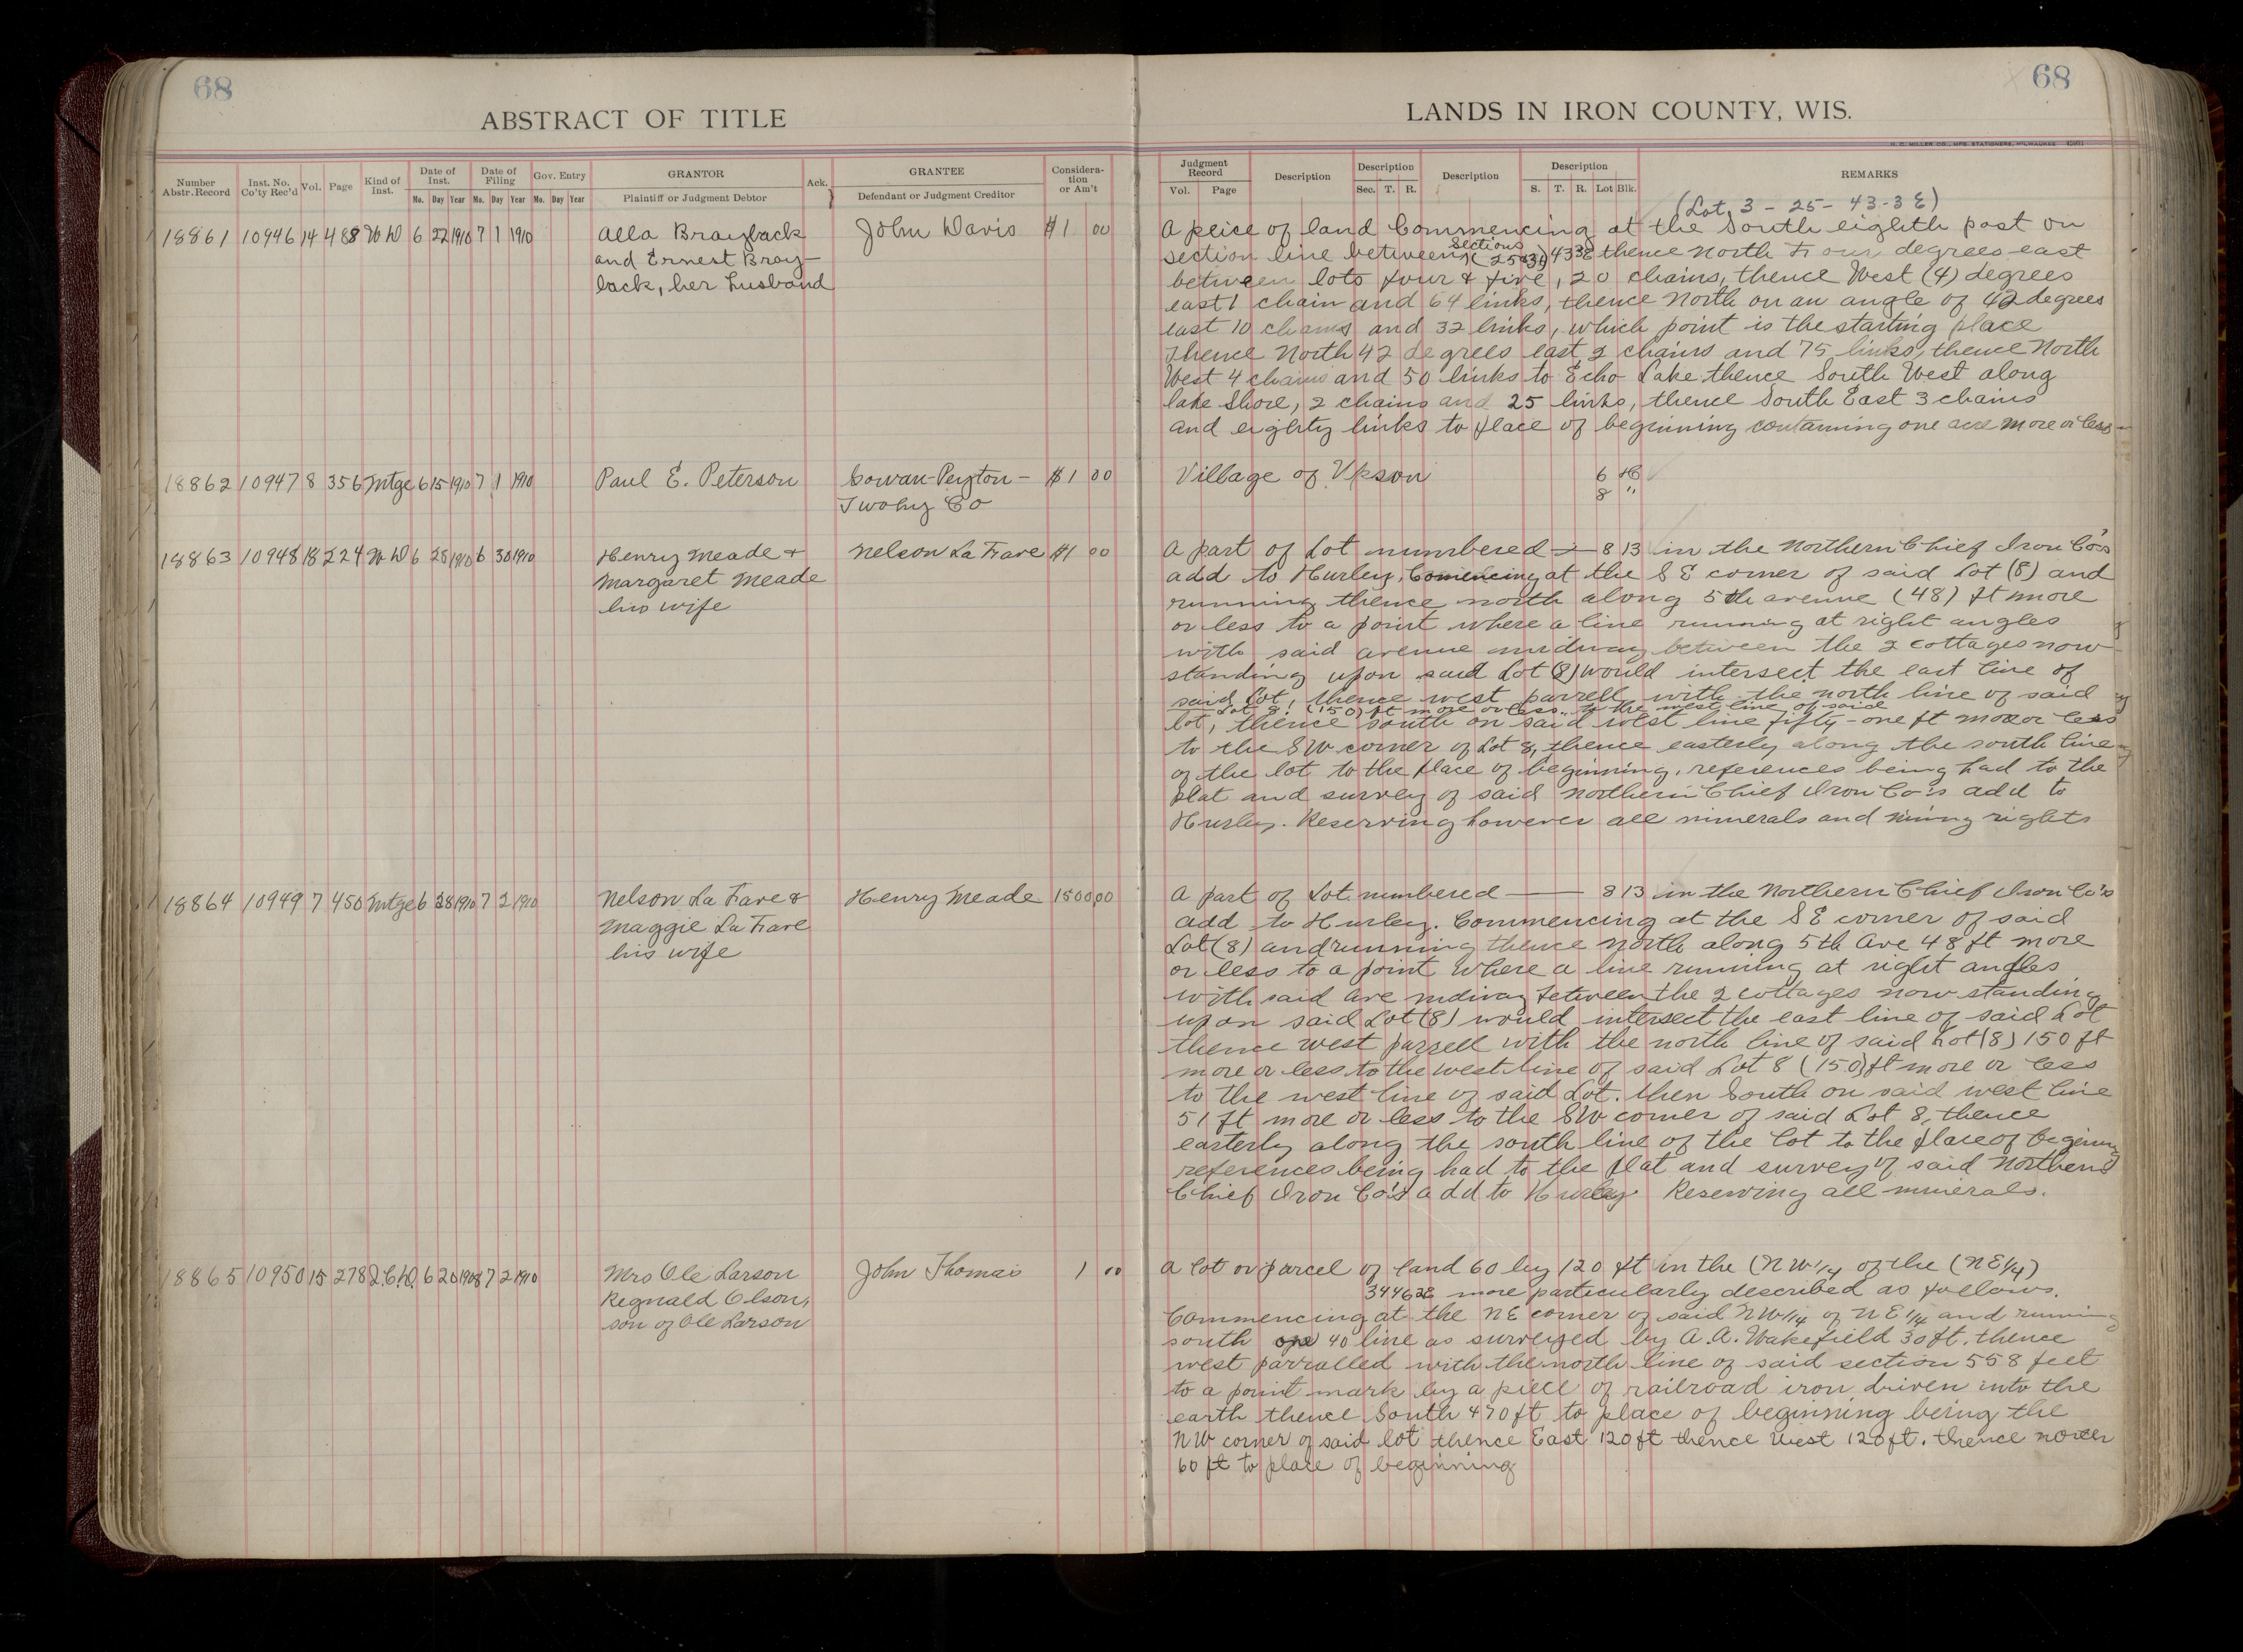 68
ABSTRACT OF TITLE
Number Abstr. Record
Inst. No. Co'ty Rec'd
Vol.
Page
Kind of Inst.
Date of Inst.
Date of Filing
Gov. Entry
GRANTOR
Ack.
GRANTEE
Considera-tion or Am't
Mo. Day Year Mo. Day Year Mo. Day Year
Plaintiff or Judgment Debtor
Defendant or Judgment Creditor
18861 10946 14 488 W D 6 22 1910 7 1 1910 Alla Brayback John Davis $1 00
and Ernest Bray-
back, her husband
18862 10947 8 356 Mtge 6 15 1910 7 1 1910 Paul E. Peterson Cowan-Peyton- $1 00
Twohy Co
18863 10948 18 224 W D 6 28 1910 6 30 1910 Henry Meade + Nelson La Fave $1 00
Margaret Meade
his wife
18864 10949 7 450 Mtge 6 28 1910 7 2 1910 Nelson La Fave & Henry Meade 1500 00
Maggie La Fave
his wife
18865 10950 15 278 2.C.D. 6 20 1908 7 2 1910 Mrs Ole Larson John Thomas 1 00
Regnald Olson,
son of Ole Larson
68
LANDS IN IRON COUNTY, WIS.
H. C. MILLER CO., MFG. STATIONERS, MILWAUKEE
Judgment Record
Description
Description
Description
Description
REMARKS
Vol. Page Sec. T. R. S. T. R. Lot Blk.
(Lot 3 - 25 - 43 - 3 E)
A peice of land Commencing at the South eighth post on
section line between Sections (25&31) 43 3E thence North Four degrees east
between lots four & five, 20 chains, thence West (4) degrees
east 1 chain and 64 links, thence North on an angle of 42 degrees
east 10 chains and 32 links, which point is the starting place
Thence North 42 degrees east 2 chains and 75 links, thence North
West 4 chains and 50 links to Echo Lake thence South West along
lake Shore, 2 chains and 25 links, thence South East 3 chains
and eighty links to place of beginning containing one acre more or less
Village of Upson 6 H
8 "
A part of Lot numbered 8 13 in the Northern Chief Iron Co's
add to Hurley, Comencing at the S E corner of said Lot (8) and
running thence north along 5th avenue (48) ft more
or less to a point where a line running at right angles
with said avenue midway between the 2 cottages now
standing upon said Lot (8) would intersect the east line of
said Lot, thence west parrell with the north line of said
Lot 8. (150) ft more or less to the west line of said
lot, thence south on said west line fifty-one ft more or less
to the SW corner of Lot 8, thence easterly along the south line
of the lot to the place of beginning, references being had to the
plat and survey of said Northern Chief Iron Co's add to
Hurley. Reserving however all minerals and mining rights
A part of Lot numbered 8 13 in the Northern Chief Iron Co's
add to Hurley. Commencing at the S E corner of said
Lot (8) and running thence north along 5th Ave 48 ft more
or less to a point where a line running at right angles
with said ave midway between the 2 cottages now standing
upon said Lot (8) would intersect the east line of said Lot
thence west parrell with the north line of said Lot (8) 150 ft
more or less to the west line of said Lot 8 (150) ft more or less
to the west line of said Lot. then South on said west line
51 ft more or less to the SW corner of said Lot 8, thence
easterly along the south line of the lot to the place of begining
references being had to the plat and survey of said Northern
Chief Iron Co's add to Hurley Reserving all minerals.
A lot or parcel of land 60 by 120 ft in the (NW 1/4 of the (NE 1/4)
34 46 2E more particularly described as follows.
Commencing at the NE corner of said NW 1/4 of NE 1/4 and running
south on 40 line as surveyed by A. A. Wakefield 30 ft. thence
west parralled with the north line of said section 558 feet
to a point mark by a piece of railroad iron driven into the
earth thence South 470 ft to place of beginning being the
NW corner of said lot thence East 120 ft thence west 120 ft. thence north
60 ft to place of beginning